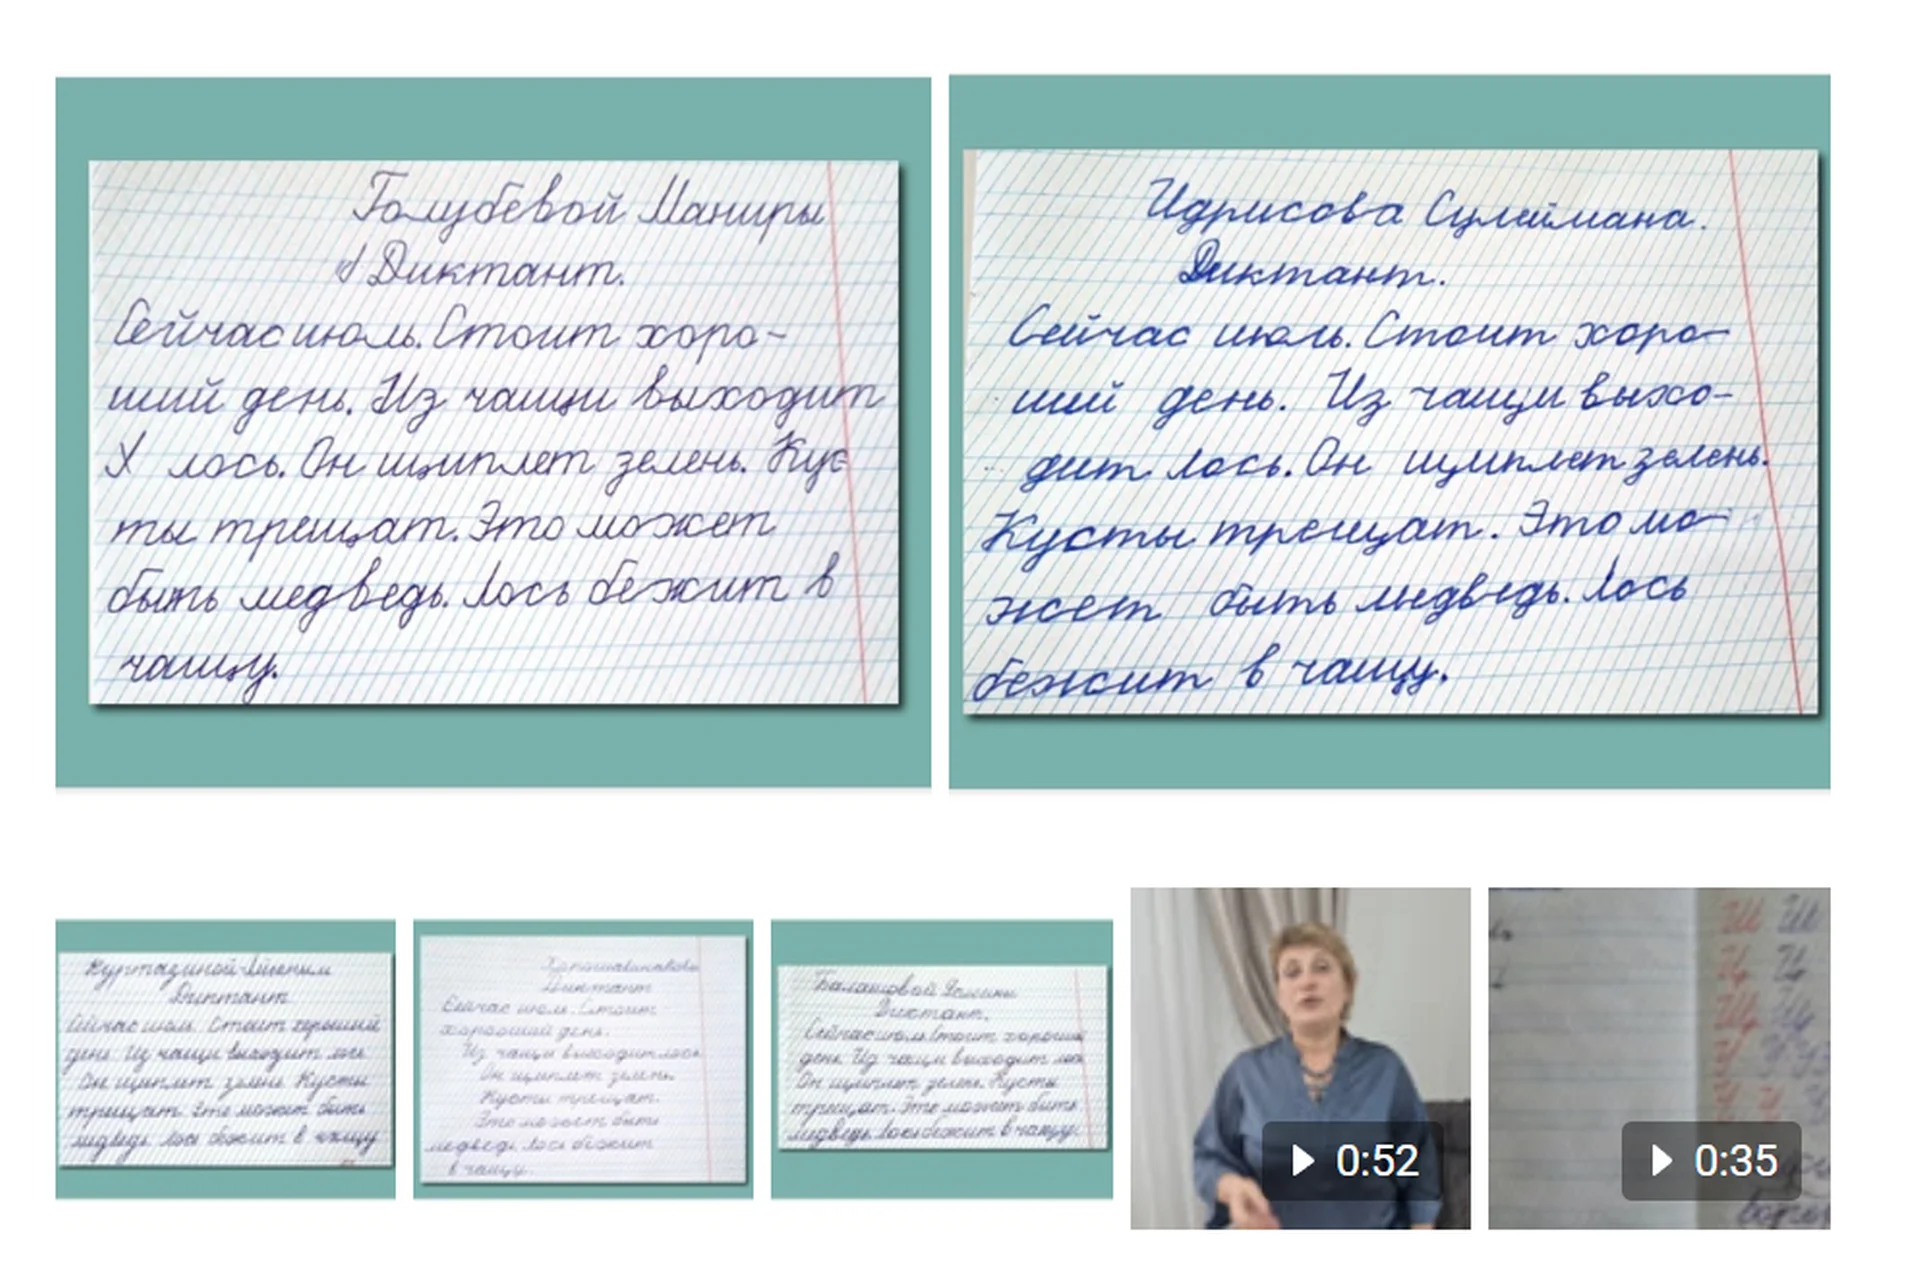 Голубевой Маниры
Диктант.
Сейчас июль. Стоит хоро-
ший день. Из чащи выходит
лось. Он щиплет зелень. Кус-
ты трещат. Это может
быть медведь. Лось бежит в
чащу.
Идрисова Сулеймана.
Диктант.
Сейчас июль. Стоит хоро-
ший день. Из чащи выхо-
дит лось. Он щиплет зелень.
Кусты трещат. Это мо-
жет быть медведь. Лось
бежит в чащу.
Диктант
Сейчас июль. Стоит хороший
день. Из чащи выходит лось
Он щиплет зелень Кусты
трещат. Это может быть
медведь. Лось бежит в чащу
Диктант
Сейчас июль. Стоит
хороший день.
Из чащи выходит лось
Он щиплет зелень.
Кусты трещат.
Это может быть
медведь. Лось бежит
в чащу.
Диктант.
Сейчас июль. Стоит хороший
день. Из чащи выходит лось
Он щиплет зелень. Кусты
трещат. Это может быть
медведь. Лось бежит в чащу.
0:52
0:35